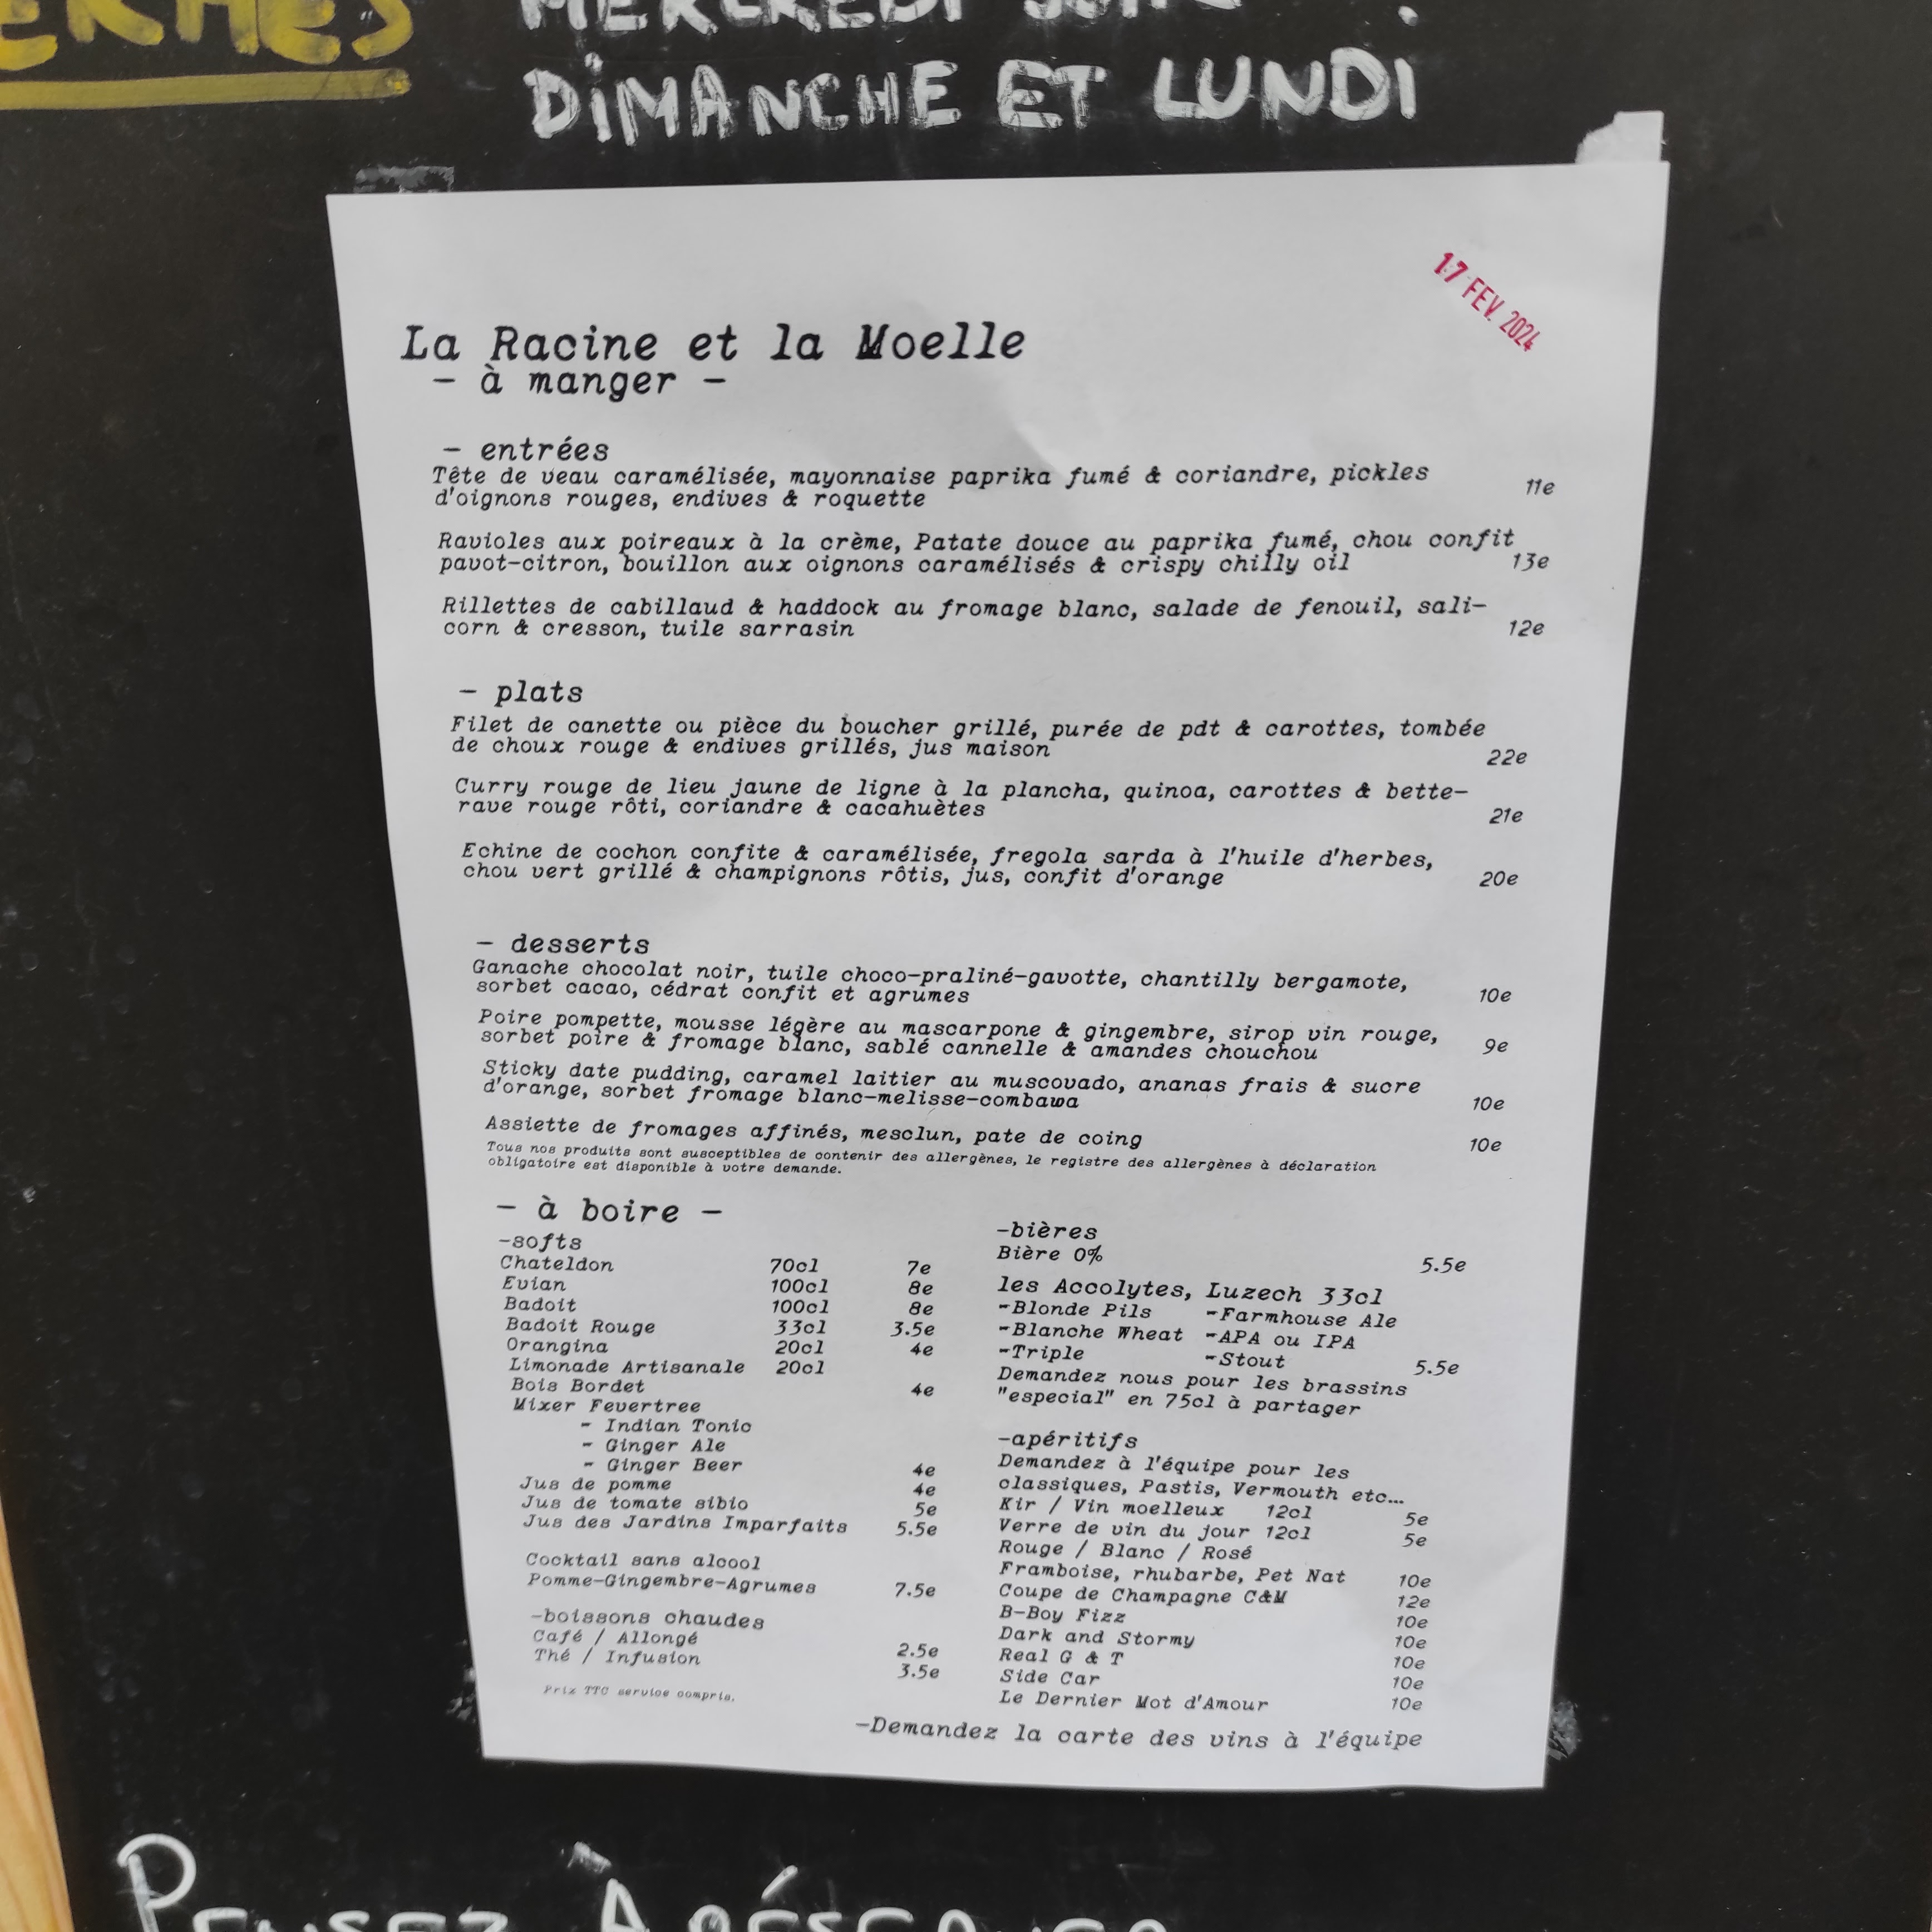 MERCREDI SOIR
DIMANCHE ET LUNDI
17 FEV. 2024
La Racine et la Moelle
- à manger -
- entrées
Tête de veau caramélisée, mayonnaise paprika fumé & coriandre, pickles
d'oignons rouges, endives & roquette 11e
Ravioles aux poireaux à la crème, Patate douce au paprika fumé, chou confit
pavot-citron, bouillon aux oignons caramélisés & crispy chilly oil 13e
Rillettes de cabillaud & haddock au fromage blanc, salade de fenouil, sali-
corn & cresson, tuile sarrasin 12e
- plats
Filet de canette ou pièce du boucher grillé, purée de pdt & carottes, tombée
de choux rouge & endives grillés, jus maison 22e
Curry rouge de lieu jaune de ligne à la plancha, quinoa, carottes & bette-
rave rouge rôti, coriandre & cacahuètes 21e
Echine de cochon confite & caramélisée, fregola sarda à l'huile d'herbes,
chou vert grillé & champignons rôtis, jus, confit d'orange 20e
- desserts
Ganache chocolat noir, tuile choco-praliné-gavotte, chantilly bergamote,
sorbet cacao, cédrat confit et agrumes 10e
Poire pompette, mousse légère au mascarpone & gingembre, sirop vin rouge,
sorbet poire & fromage blanc, sablé cannelle & amandes chouchou 9e
Sticky date pudding, caramel laitier au muscovado, ananas frais & sucre
d'orange, sorbet fromage blanc-melisse-combawa 10e
Assiette de fromages affinés, mesclun, pate de coing 10e
Tous nos produits sont susceptibles de contenir des allergènes, le registre des allergènes à déclaration
obligatoire est disponible à votre demande.
- à boire -
-softs
Chateldon 70cl 7e
Evian 100cl 8e
Badoit 100cl 8e
Badoit Rouge 33cl 3.5e
Orangina 20cl 4e
Limonade Artisanale 20cl
Bois Bordet 4e
Mixer Fevertree
- Indian Tonic
- Ginger Ale
- Ginger Beer 4e
Jus de pomme 4e
Jus de tomate sibio 5e
Jus des Jardins Imparfaits 5.5e
Cocktail sans alcool
Pomme-Gingembre-Agrumes 7.5e
-boissons chaudes
Café / Allongé 2.5e
Thé / Infusion 3.5e
Prix TTC service compris.
-bières
Bière 0% 5.5e
les Accolytes, Luzech 33cl
-Blonde Pils -Farmhouse Ale
-Blanche Wheat -APA ou IPA
-Triple -Stout 5.5e
Demandez nous pour les brassins
"especial" en 75cl à partager
-apéritifs
Demandez à l'équipe pour les
classiques, Pastis, Vermouth etc…
Kir / Vin moelleux 12cl 5e
Verre de vin du jour 12cl 5e
Rouge / Blanc / Rosé
Framboise, rhubarbe, Pet Nat 10e
Coupe de Champagne C&M 12e
B-Boy Fizz 10e
Dark and Stormy 10e
Real G & T 10e
Side Car 10e
Le Dernier Mot d'Amour 10e
-Demandez la carte des vins à l'équipe
PENSEZ À RÉSERVER